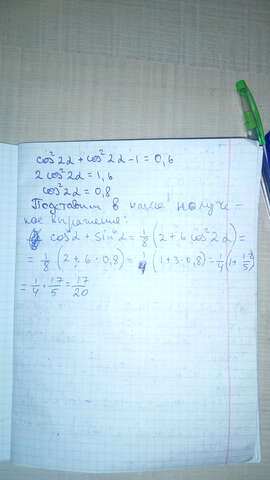 cos²2α + cos²2α - 1 = 0,6
2 cos²2α = 1,6
cos²2α = 0,8
Подставим в наше получе-
ное выражение:
cos⁶α + sin⁶α = 1/8 (2 + 6 cos²2α) =
= 1/8 (2 + 6 · 0,8) = 1/4 (1 + 3 · 0,8) = 1/4 (1 + 12/5)
= 1/4 · 17/5 = 17/20